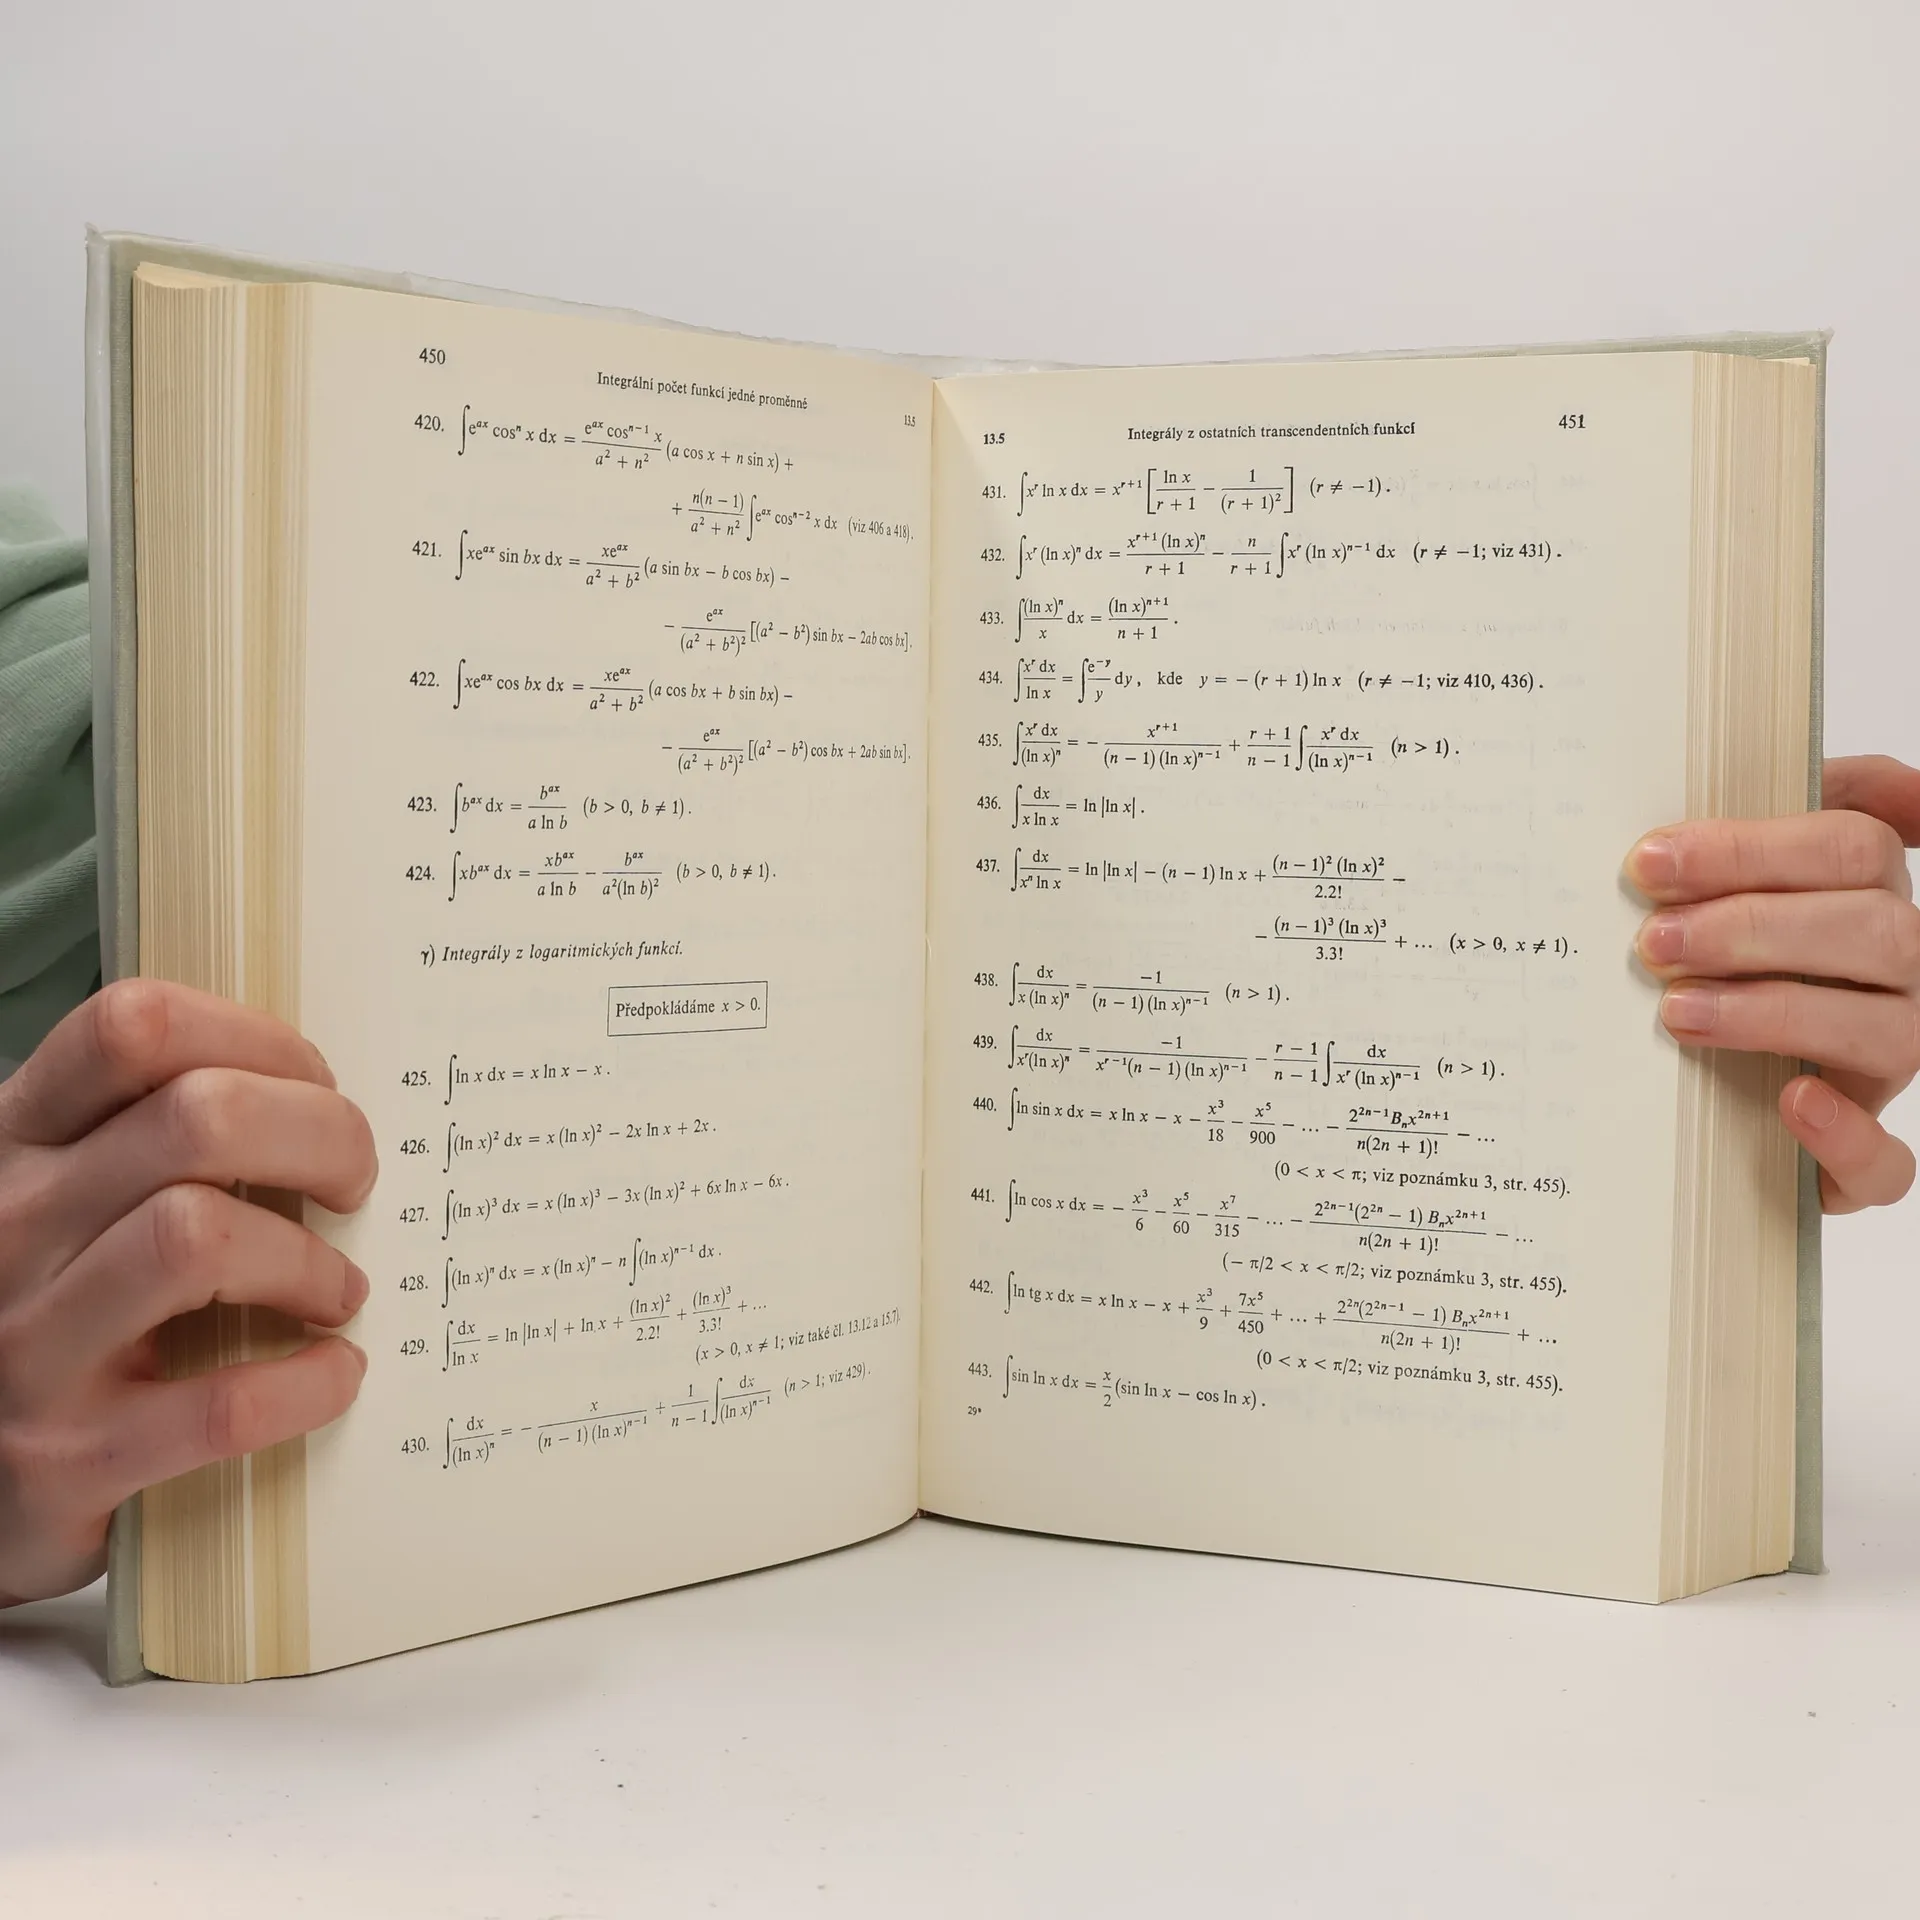 450
Integrální počet funkcí jedné proměnné
13.5
420. ∫e^{ax} cos^n x dx = \frac{e^{ax} cos^{n−1} x}{a² + n²} (a cos x + n sin x) +
+ \frac{n(n − 1)}{a² + n²} ∫e^{ax} cos^{n−2} x dx (viz 406 a 418).
421. ∫xe^{ax} sin bx dx = \frac{xe^{ax}}{a² + b²} (a sin bx − b cos bx) −
− \frac{e^{ax}}{(a² + b²)²} [(a² − b²) sin bx − 2ab cos bx].
422. ∫xe^{ax} cos bx dx = \frac{xe^{ax}}{a² + b²} (a cos bx + b sin bx) −
− \frac{e^{ax}}{(a² + b²)²} [(a² − b²) cos bx + 2ab sin bx].
423. ∫b^{ax} dx = \frac{b^{ax}}{a ln b} (b > 0, b ≠ 1).
424. ∫xb^{ax} dx = \frac{xb^{ax}}{a ln b} − \frac{b^{ax}}{a²(ln b)²} (b > 0, b ≠ 1).
γ) Integrály z logaritmických funkcí.
Předpokládáme x > 0.
425. ∫ln x dx = x ln x − x.
426. ∫(ln x)² dx = x (ln x)² − 2x ln x + 2x.
427. ∫(ln x)³ dx = x (ln x)³ − 3x (ln x)² + 6x ln x − 6x.
428. ∫(ln x)^n dx = x (ln x)^n − n ∫(ln x)^{n−1} dx.
429. ∫\frac{dx}{ln x} = ln |ln x| + ln x + \frac{(ln x)²}{2.2!} + \frac{(ln x)³}{3.3!} + ...
(x > 0, x ≠ 1; viz také čl. 13.12 a 15.7).
430. ∫\frac{dx}{(ln x)^n} = − \frac{x}{(n − 1) (ln x)^{n−1}} + \frac{1}{n − 1} ∫\frac{dx}{(ln x)^{n−1}} (n > 1; viz 429).
13.5
Integrály z ostatních transcendentních funkcí
451
431. ∫x^r ln x dx = x^{r+1} [\frac{ln x}{r + 1} − \frac{1}{(r + 1)²}] (r ≠ −1).
432. ∫x^r (ln x)^n dx = \frac{x^{r+1} (ln x)^n}{r + 1} − \frac{n}{r + 1} ∫x^r (ln x)^{n−1} dx (r ≠ −1; viz 431).
433. ∫\frac{(ln x)^n}{x} dx = \frac{(ln x)^{n+1}}{n + 1}.
434. ∫\frac{x^r dx}{ln x} = ∫\frac{e^{−y}}{y} dy, kde y = − (r + 1) ln x (r ≠ −1; viz 410, 436).
435. ∫\frac{x^r dx}{(ln x)^n} = − \frac{x^{r+1}}{(n − 1) (ln x)^{n−1}} + \frac{r + 1}{n − 1} ∫\frac{x^r dx}{(ln x)^{n−1}} (n > 1).
436. ∫\frac{dx}{x ln x} = ln |ln x|.
437. ∫\frac{dx}{x^n ln x} = ln |ln x| − (n − 1) ln x + \frac{(n − 1)² (ln x)²}{2.2!} −
− \frac{(n − 1)³ (ln x)³}{3.3!} + ... (x > 0, x ≠ 1).
438. ∫\frac{dx}{x (ln x)^n} = \frac{−1}{(n − 1) (ln x)^{n−1}} (n > 1).
439. ∫\frac{dx}{x^r(ln x)^n} = \frac{−1}{x^{r−1}(n − 1) (ln x)^{n−1}} − \frac{r − 1}{n − 1} ∫\frac{dx}{x^r (ln x)^{n−1}} (n > 1).
440. ∫ln sin x dx = x ln x − x − \frac{x³}{18} − \frac{x⁵}{900} − ... − \frac{2^{2n−1}B_n x^{2n+1}}{n(2n + 1)!} − ...
(0 < x < π; viz poznámku 3, str. 455).
441. ∫ln cos x dx = − \frac{x³}{6} − \frac{x⁵}{60} − \frac{x⁷}{315} − ... − \frac{2^{2n−1}(2^{2n} − 1) B_n x^{2n+1}}{n(2n + 1)!} − ...
(− π/2 < x < π/2; viz poznámku 3, str. 455).
442. ∫ln tg x dx = x ln x − x + \frac{x³}{9} + \frac{7x⁵}{450} + ... + \frac{2^{2n}(2^{2n−1} − 1) B_n x^{2n+1}}{n(2n + 1)!} + ...
(0 < x < π/2; viz poznámku 3, str. 455).
443. ∫sin ln x dx = \frac{x}{2} (sin ln x − cos ln x).
29*